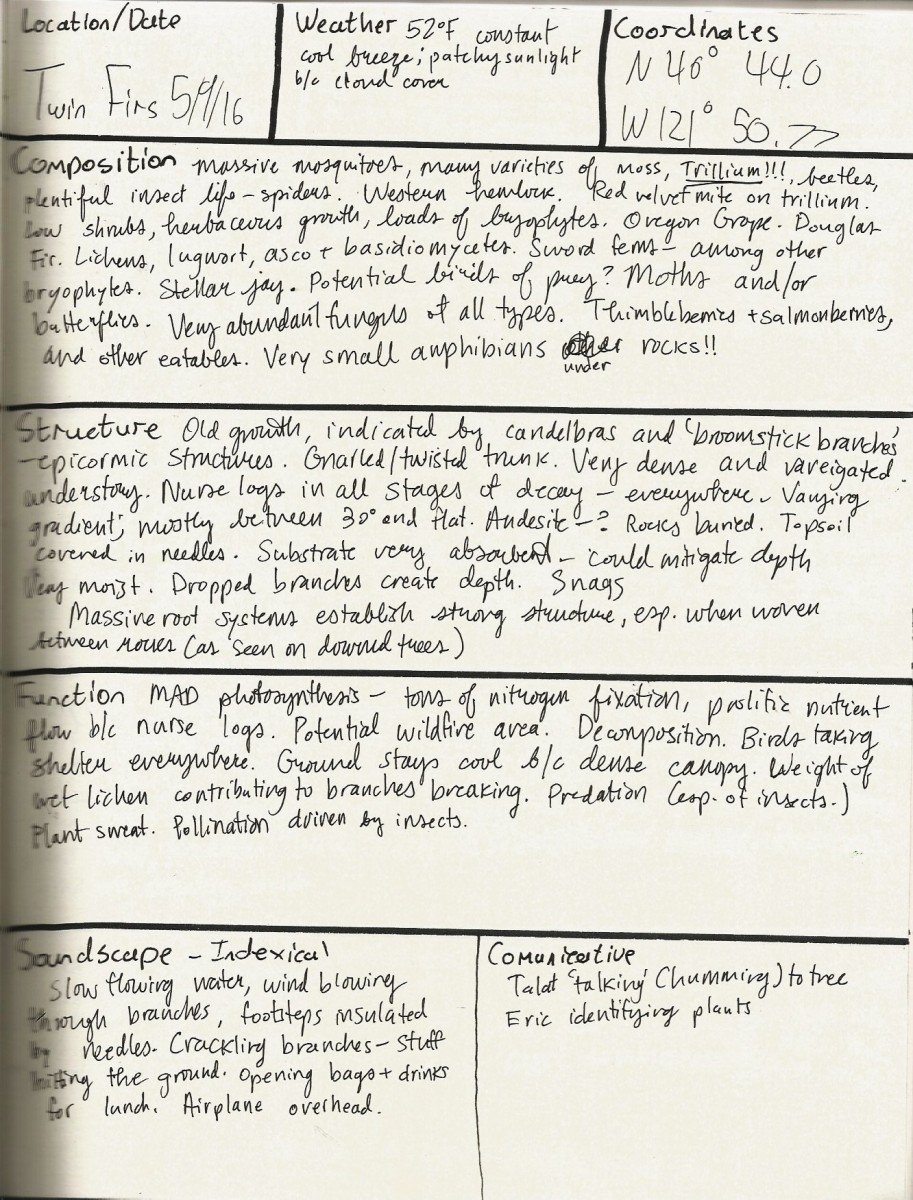 Location/Date
Twin Firs 5/9/16
Weather 52°F constant
cool breeze; patchy sunlight
b/c cloud cover
Coordinates
N 46° 44.0
W 121° 50.77
Composition massive mosquitoes, many varieties of moss, Trillium!!!, beetles,
plentiful insect life - spiders. Western hemlock. Red velvet mite on trillium.
Low shrubs, herbaceous growth, loads of bryophytes. Oregon Grape. Douglas
Fir. Lichens, lugwort, asco + basidiomycetes. Sword ferns - among other
bryophytes. Stellar jay. Potential birds of prey? Moths and/or
butterflies. Very abundant fungus of all types. Thimbleberries + salmonberries,
and other eatables. Very small amphibians under rocks!!
Structure Old growth, indicated by candelbras and 'broomstick branches'
- epicormic structures. Gnarled/twisted trunk. Very dense and vareigated
understory. Nurse logs in all stages of decay - everywhere. Varying
gradient; mostly between 30° and flat. Andesite - ? Rocks buried. Topsoil
covered in needles. Substrate very absorbent - could mitigate depth
Very moist. Dropped branches create depth. Snags
Massive root systems establish strong structure, esp. when woven
between rocks (as seen on downed trees)
Function MAD photosynthesis - tons of nitrogen fixation, prolific nutrient
flow b/c nurse logs. Potential wildfire area. Decomposition. Birds taking
shelter everywhere. Ground stays cool b/c dense canopy. Weight of
wet lichen contributing to branches breaking. Predation (esp. of insects.)
Plant sweat. Pollination driven by insects.
Soundscape - Indexical
Slow flowing water, wind blowing
through branches, footsteps insulated
by needles. Crackling branches - stuff
hitting the ground. Opening bags + drinks
for lunch. Airplane overhead.
Comunicative
Talat 'talking' (humming) to tree
Eric identifying plants